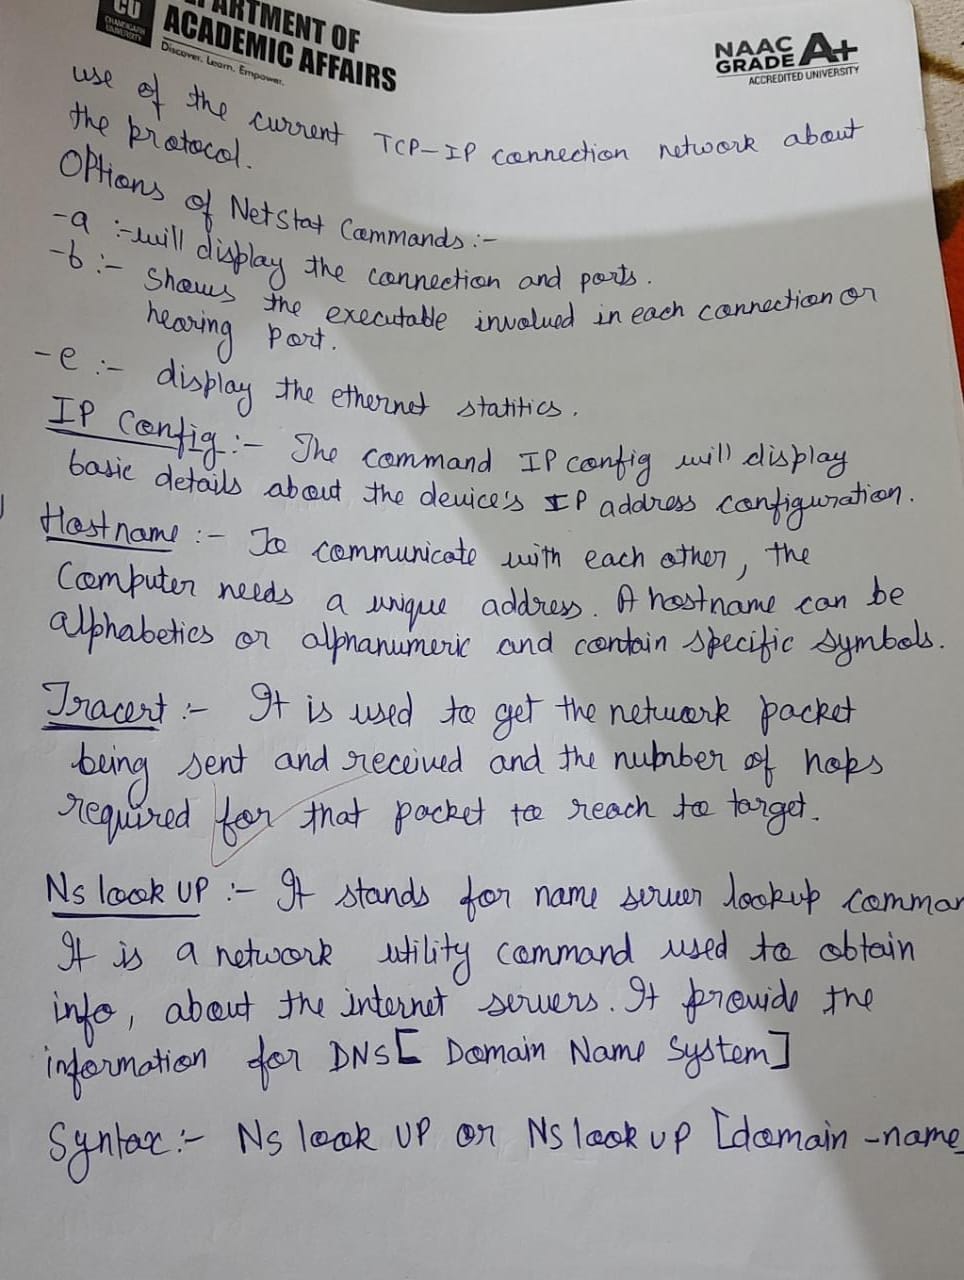 CU
CHANDIGARH
UNIVERSITY
DEPARTMENT OF
ACADEMIC AFFAIRS
Discover. Learn. Empower.
NAAC
GRADE A+
ACCREDITED UNIVERSITY
use of the current TCP-IP connection network about
the protocol.
Options of Netstat Commands:-
-a :- will display the connection and ports.
-b :- Shows the executable involved in each connection or
hearing Port.
-e :- display the ethernet statitics.
IP Config :- The command IP config will display
basic details about the device's IP address configuration.
Hostname :- To communicate with each other, the
Computer needs a unique address. A hostname can be
alphabetics or alphanumeric and contain specific symbols.
Tracert :- It is used to get the network packet
being sent and received and the number of hops
required for that packet to reach to target.
Ns look UP :- It stands for name server lookup comman
It is a network utility command used to obtain
info, about the internet servers. It provide the
information for DNS [ Domain Name System]
Syntax :- Ns look UP or Ns look up [domain -name